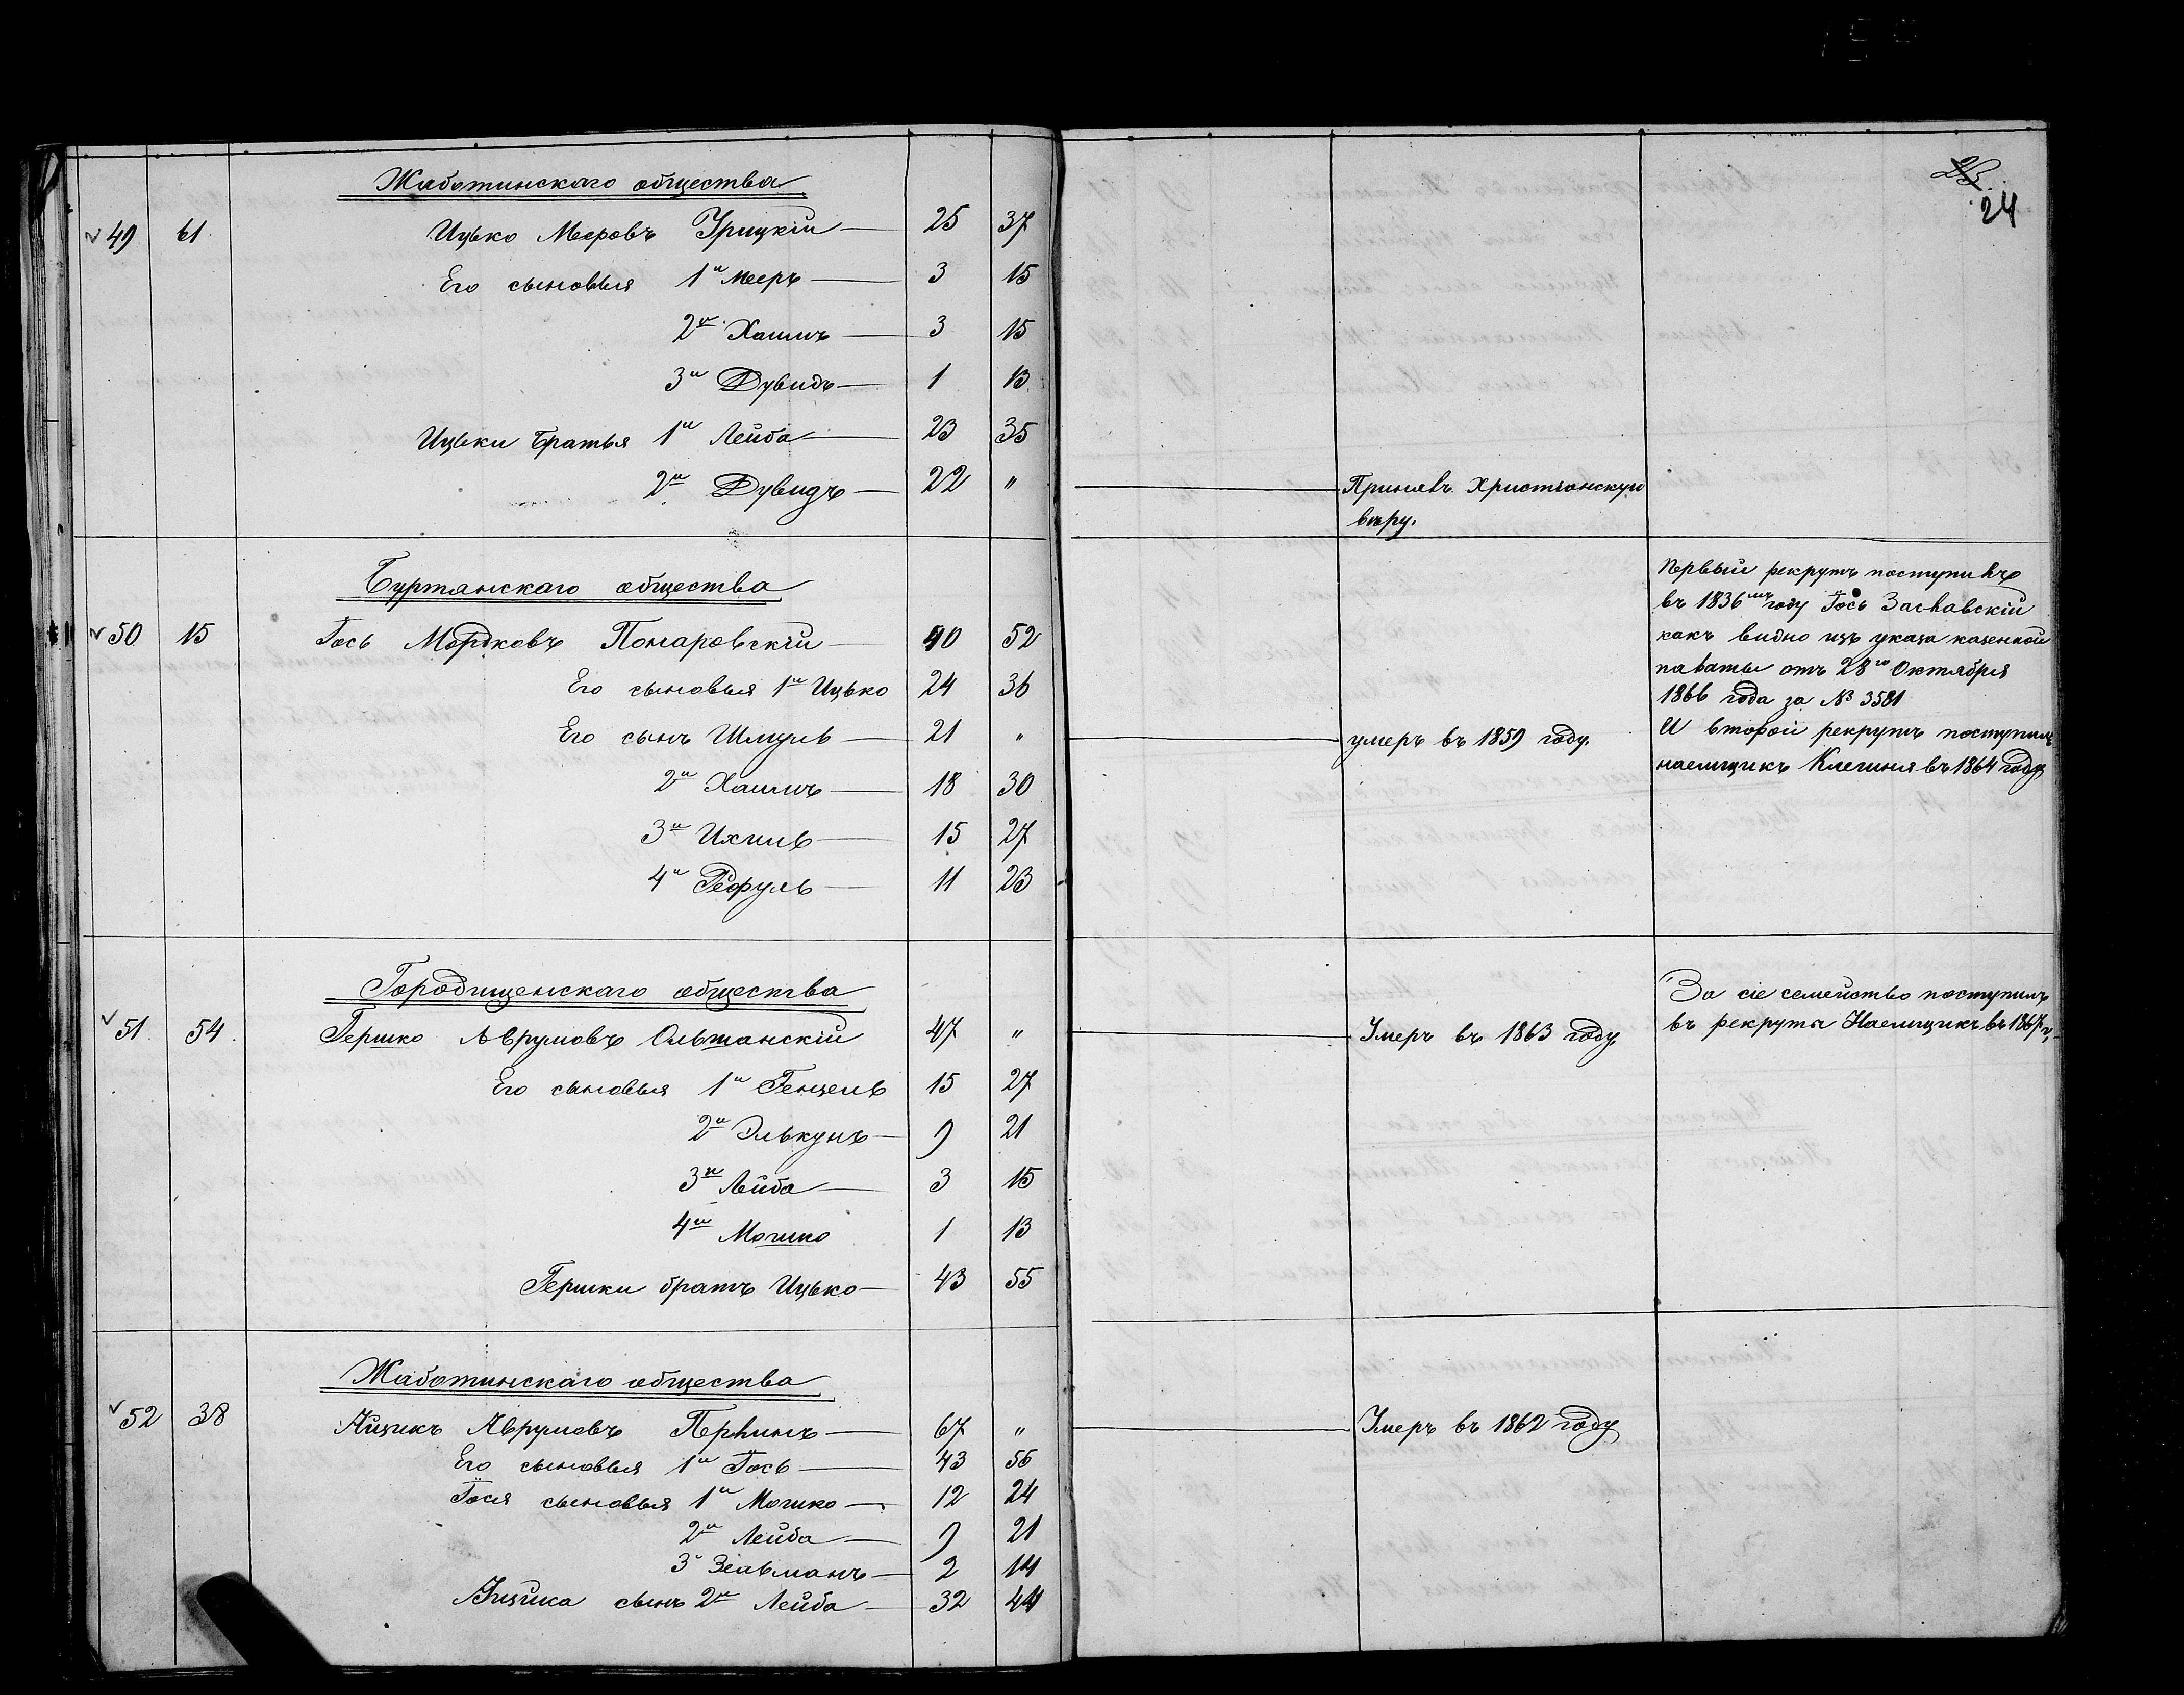 24
Жаботинскаго общества
49 61 Ицько Мееровъ Урицкій 25 37
Его сыновья 1й Мееръ 3 15
2й Хаимъ 3 15
3й Дувидъ 1 13
Ицьки братья 1й Лейба 23 35
2й Дувидъ 22 " Принявъ Христіанскую
вѣру.
Буртянскаго общества
50 15 Іось Мордковъ Понаровскій 40 52
Его сыновья 1й Ицько 24 36
Его сынъ Шмуль 21 " умеръ въ 1859 году.
2й Хаимъ 18 30
3й Ихиль 15 27
4й Рефуль 11 23
Первый рекрутъ поступилъ
въ 1836мъ году Іось Заславскій
какъ видно изъ указа казенной
палаты отъ 28го Октября
1866 года за № 3581
И второй рекрутъ поступилъ
наемщикъ въ 1864 году
Городищенскаго общества
51 54 Гершко Аврумовъ Ольшанскій 47 " Умеръ въ 1863 году
Его сыновья 1й Генцель 15 27
2й Элькунъ 9 21
3й Лейба 3 15
4й Мошко 1 13
Гершки братъ Ицько 43 55
За сіе семейство поступилъ
въ рекруты Наемщикъ въ 1867 г.
Жаботинскаго общества
52 38 Айзикъ Аврумовъ 67 " Умеръ въ 1862 году
Его сыновья 1й Іось 43 55
Іося сыновья 1й Мошко 12 24
2й Лейба 9 21
3й Зельманъ 2 14
Айзика сынъ 2й Лейба 32 44